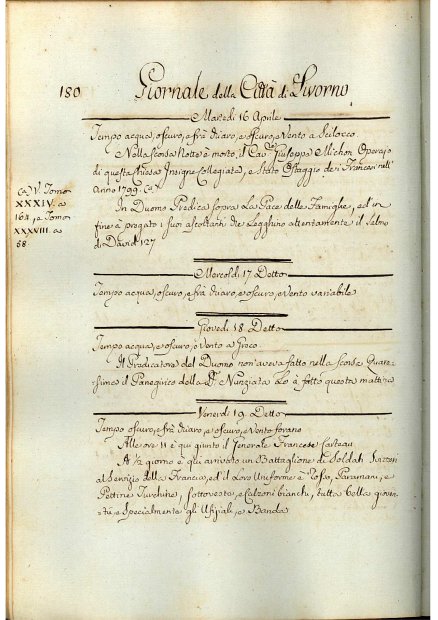 180
Giornale della Città di Livorno
Martedì 16 Aprile
Tempo acqua, oscuro, e frà chiaro, e oscuro, e Vento a Scilocco
Nella Scorsa Notte è morto il Cav. Giuseppe Michon Operajo
di questa Chiesa Insigne Collegiata, e Stato Ostaggio de' Francesi nell'
Anno 1799. Ca
Ca V. Tomo
XXXIV. a
164, e Tomo
XXXVIII a
68
In Duomo Predica sopra La Pace delle Famiglie, ed in
fine à pregato i suoi ascoltanti che Legghino attentamente il Salmo
di David 127
Mercoldì 17 Detto
Tempo acqua, oscuro, e frà chiaro, e oscuro, e Vento variabile
Giovedì 18 Detto
Tempo acqua, e oscuro, e Vento a Greco
Il Predicatore del Duomo non aveva fatto nella Scorsa Quare-
sima il Panegirico della Nunziata Lo à fatto questa mattina
Venerdì 19 Detto
Tempo oscuro, e frà chiaro, e oscuro, e Vento forano
Alle ore 11 è qui giunto il Generale Francese
A ½ giorno è qui arrivato un Battaglione di Soldati Svizzeri
al Servizio della Francia, ed il Loro Uniforme è Rosso, Paramani, e
Pettine Turchine, Sottovesta, e Calzoni bianchi, tutta bella gioven-
tù, e specialmente gli Ufiziali, e Banda